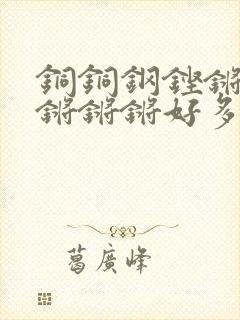 銅銅鋼鏗鏘
鏘鏘鏘好多
葛廣峰